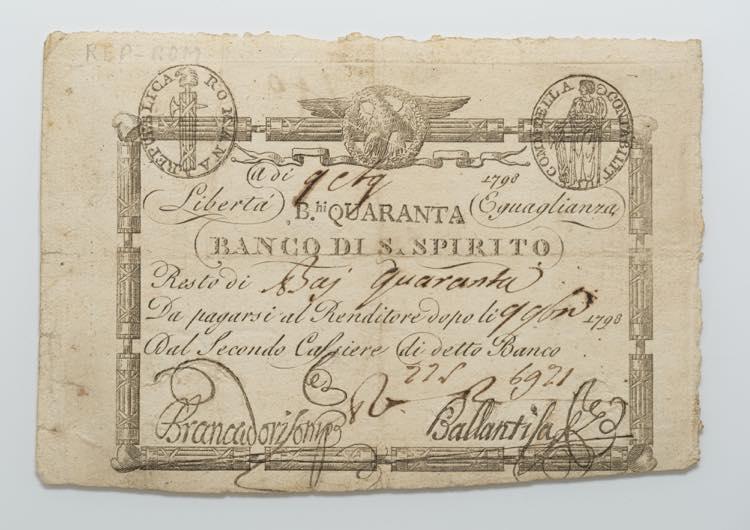 REP-ROM
REPUBLICA ROMANA
COMP. DELLA CONTABILIT
A di 9 1798
Libertà B.hi QUARANTA Eguaglianza
BANCO DI S. SPIRITO
Resto di Baj quaranta
Da pagarsi al Renditore dopo li 9 9bre 1798
Dal Secondo Cassiere di detto Banco
225 6921
Brancadori
Ballanti